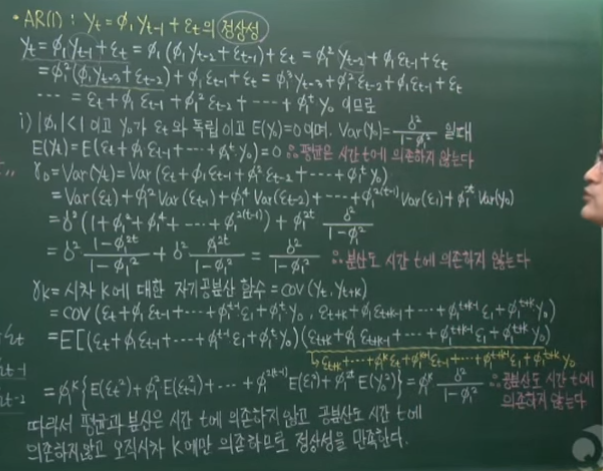 • AR(1) : Yt = φ1 Yt-1 + εt의 정상성
Yt = φ1 Yt-1 + εt = φ1 (φ1 Yt-2 + εt-1) + εt = φ1² Yt-2 + φ1 εt-1 + εt
= φ1² (φ1 Yt-3 + εt-2) + φ1 εt-1 + εt = φ1³ Yt-3 + φ1² εt-2 + φ1 εt-1 + εt
... = εt + φ1 εt-1 + φ1² εt-2 + ... + φ1^t Y0 이므로
i) |φ1| < 1 이고 Y0가 εt와 독립이고 E(Y0)=0 이며, Var(Y0) = δ²/(1-φ1²) 일 때
E(Yt) = E(εt + φ1 εt-1 + ... + φ1^t Y0) = 0 ∴ 평균은 시간 t에 의존하지 않는다
γ0 = Var(Yt) = Var(εt + φ1 εt-1 + φ1² εt-2 + ... + φ1^t Y0)
= Var(εt) + φ1² Var(εt-1) + φ1⁴ Var(εt-2) + ... + φ1^2(t-1) Var(ε1) + φ1^2t Var(Y0)
= δ² (1 + φ1² + φ1⁴ + ... + φ1^2(t-1)) + φ1^2t δ²/(1-φ1²)
= δ² (1-φ1^2t)/(1-φ1²) + δ² φ1^2t/(1-φ1²) = δ²/(1-φ1²) ∴ 분산도 시간 t에 의존하지 않는다
γK = 시차 K에 대한 자기공분산 함수 = COV (Yt, Yt+k)
= COV (εt + φ1 εt-1 + ... + φ1^t-1 ε1 + φ1^t Y0, εt+k + φ1 εt+k-1 + ... + φ1^t+k-1 ε1 + φ1^t+k Y0)
= E[(εt + φ1 εt-1 + ... + φ1^t-1 ε1 + φ1^t Y0) (εt+k + φ1 εt+k-1 + ... + φ1^t+k-1 ε1 + φ1^t+k Y0)
εt+k + ... + φ1^k εt + φ1^k+1 εt-1 + ... + φ1^t+k-1 ε1 + φ1^t+k Y0
= φ1^k { E(εt²) + φ1² E(εt-1²) + ... + φ1^2(t-1) E(ε1²) + φ1^2t E(Y0²) } = φ1^k δ²/(1-φ1²) ∴ 공분산도 시간 t에
의존하지 않는다
따라서 평균과 분산은 시간 t에 의존하지 않고 공분산도 시간 t에
의존하지않고 오직시차 K에만 의존하므로 정상성을 만족한다.